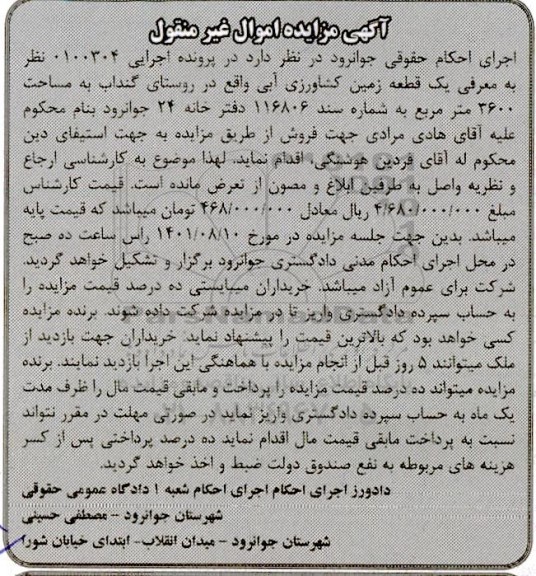 آگهی مزایده اموال غیر منقول
اجرای احکام حقوقی جوانرود در نظر دارد در پرونده اجرایی ۰۱۰۰۳۰۴ نظر
به معرفی یک قطعه زمین کشاورزی آبی واقع در روستای گنداب به مساحت
۳۶۰۰ متر مربع به شماره سند ۱۱۶۸۰۶ دفتر خانه ۲۴ جوانرود بنام محکوم
علیه آقای هادی مرادی جهت فروش از طریق مزایده به جهت استیفای دین
محکوم له آقای فردین هوشنگی، اقدام نماید. لهذا موضوع به کارشناسی ارجاع
و نظریه واصل به طرفین ابلاغ و مصون از تعرض مانده است. قیمت کارشناس
مبلغ ۴/۶۸۰/۰۰۰/۰۰۰ ریال معادل ۴۶۸/۰۰۰/۰۰۰ تومان میباشد که قیمت پایه
میباشد. بدین جهت جلسه مزایده در مورخ ۱۴۰۱/۰۸/۱۰ راس ساعت ده صبح
در محل اجرای احکام مدنی دادگستری جوانرود برگزار و تشکیل خواهد گردید.
شرکت برای عموم آزاد میباشد. خریداران میبایستی ده درصد قیمت مزایده را
به حساب سپرده دادگستری واریز تا در مزایده شرکت داده شوند. برنده مزایده
کسی خواهد بود که بالاترین قیمت را پیشنهاد نماید. خریداران جهت بازدید از
ملک میتوانند ۵ روز قبل از انجام مزایده با هماهنگی این اجرا بازدید نمایند. برنده
مزایده میتواند ده درصد قیمت مزایده را پرداخت و مابقی قیمت مال را ظرف مدت
یک ماه به حساب سپرده دادگستری واریز نماید در صورتی مهلت در مقرر نتواند
نسبت به پرداخت مابقی قیمت مال اقدام نماید ده درصد پرداختی پس از کسر
هزینه های مربوطه به نفع صندوق دولت ضبط و اخذ خواهد گردید.
دادورز اجرای احکام اجرای احکام شعبه ۱ دادگاه عمومی حقوقی
شهرستان جوانرود - مصطفی حسینی
شهرستان جوانرود - میدان انقلاب- ابتدای خیابان شورا